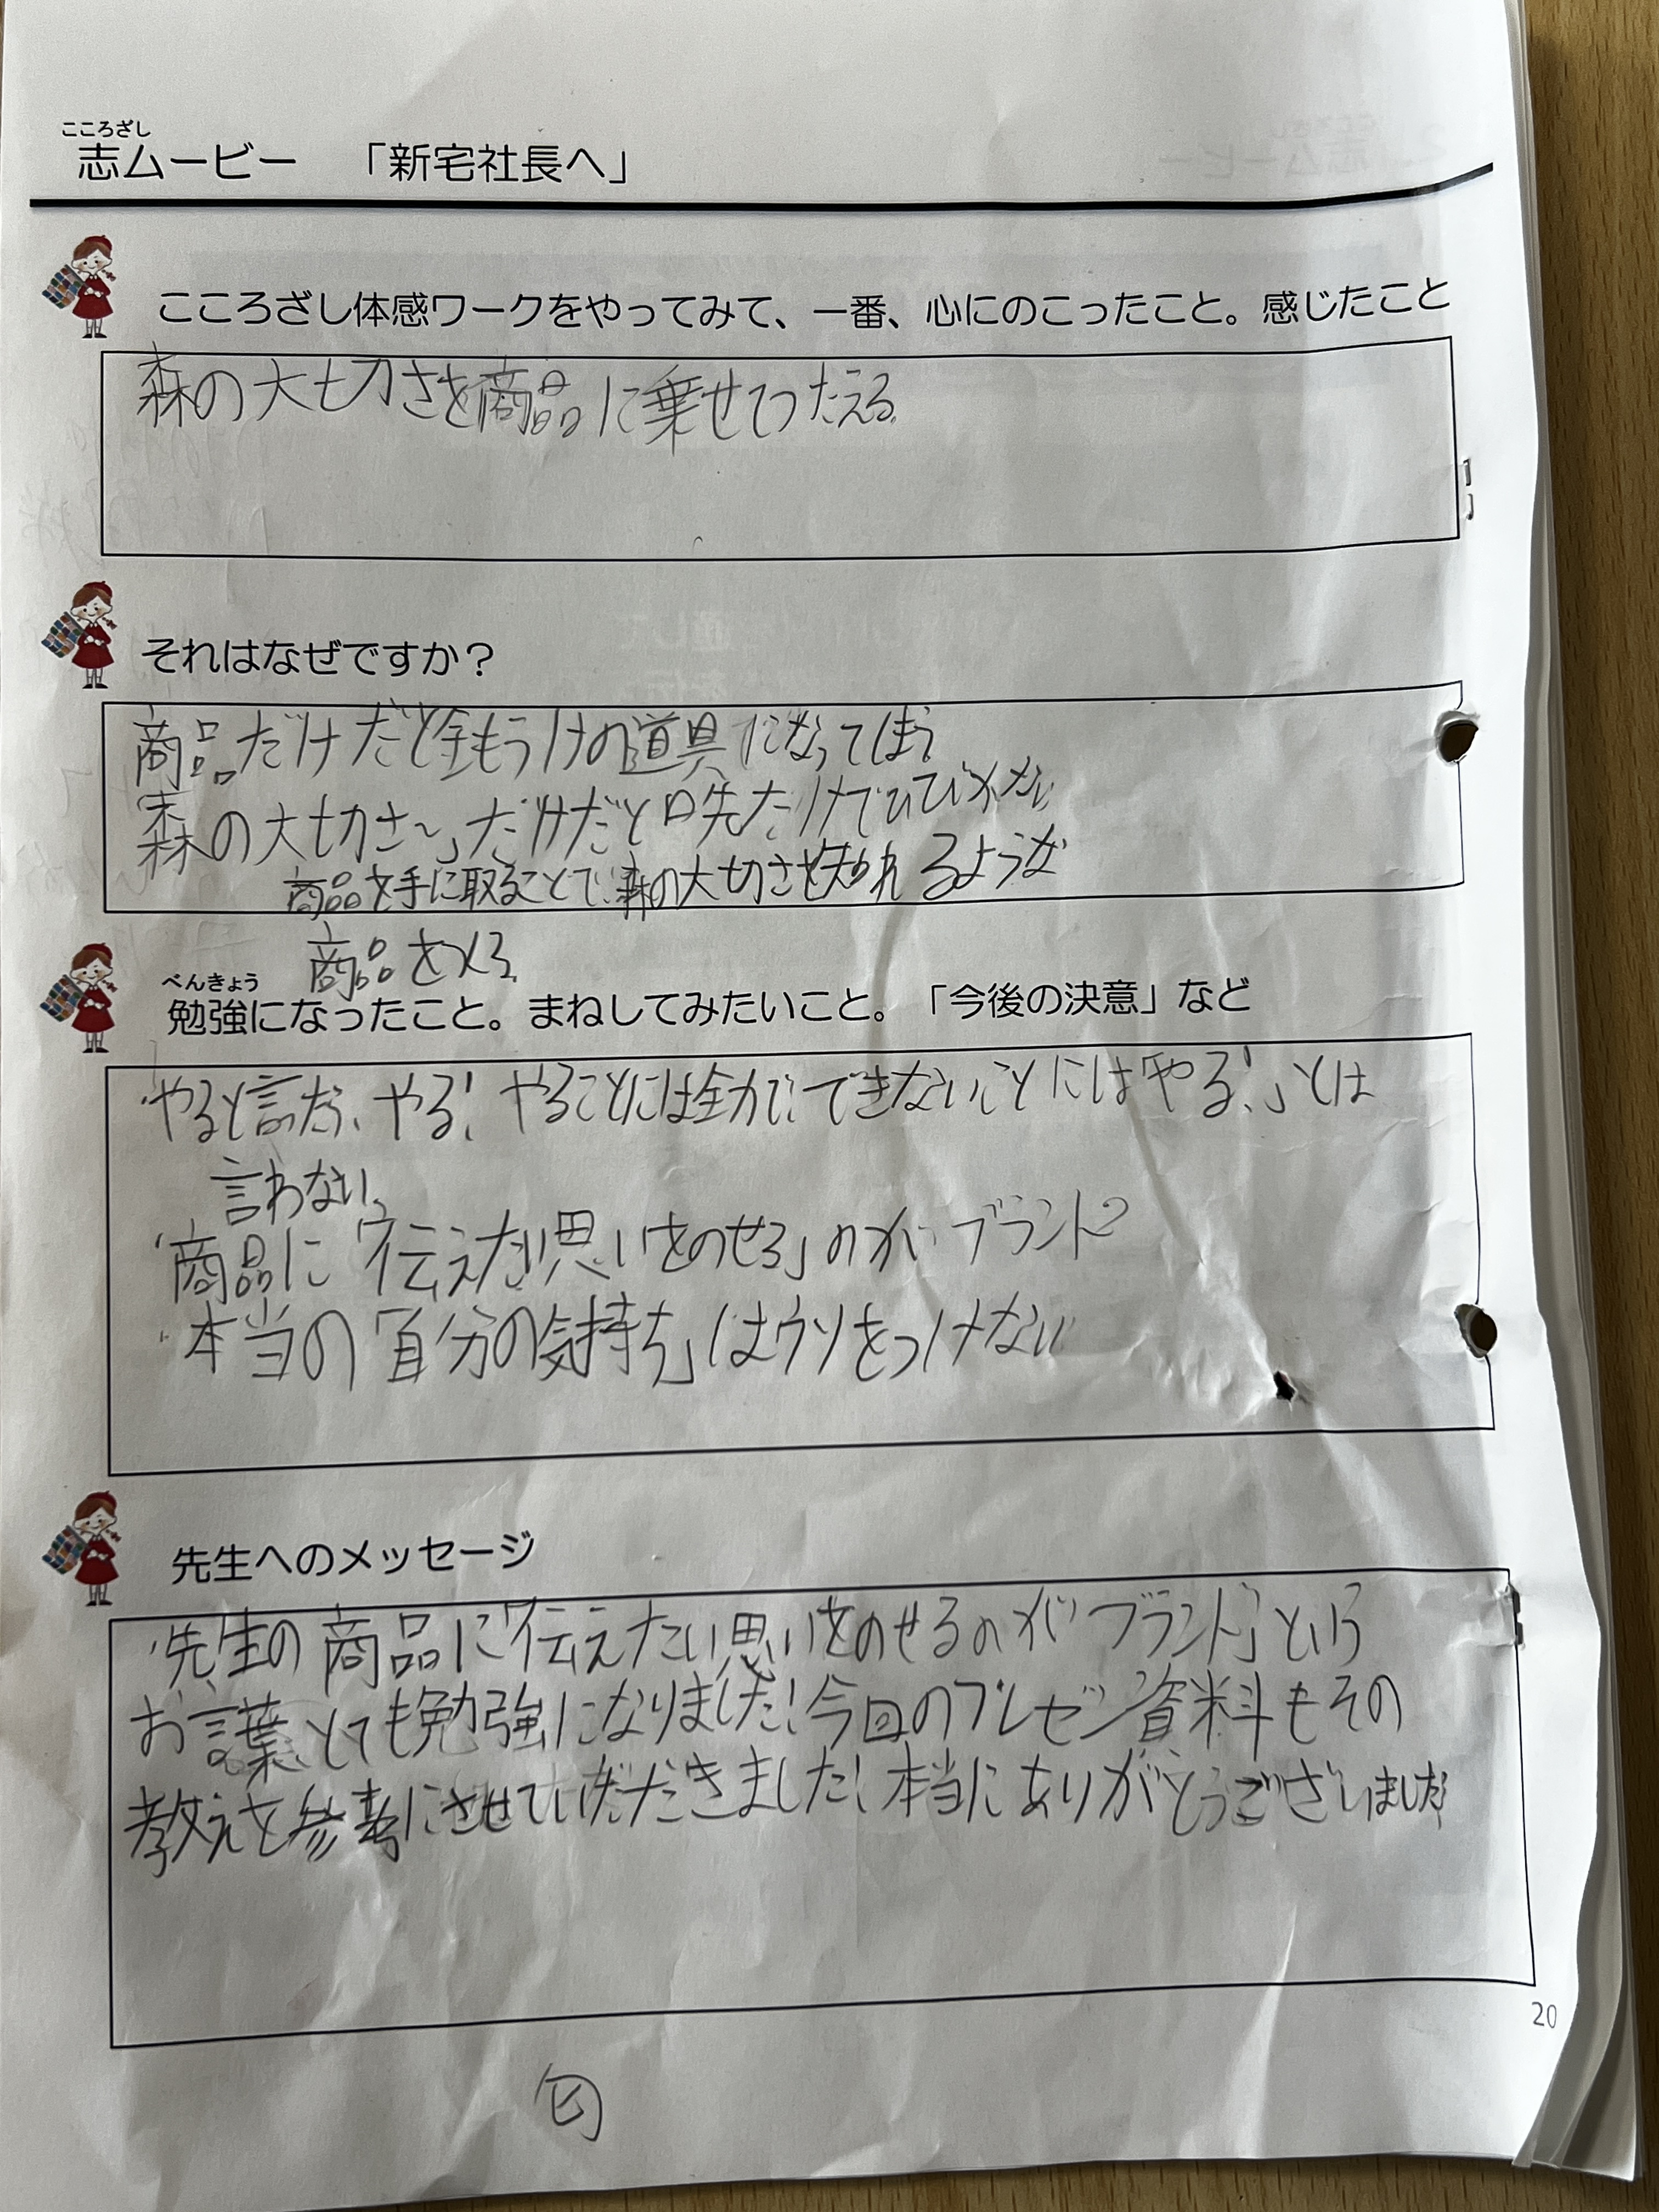 こころざし
志ムービー　「新宅社長へ」
こころざし体感ワークをやってみて、一番、心にのこったこと。感じたこと
森の大切さを商品に乗せてつたえる。
それはなぜですか？
商品だけだと金もうけの道具になってしまう
森の大切さ〜」だけだと口先だけで
商品を手に取ることで、森の大切さを知れるような
商品をつくる。
べんきょう
勉強になったこと。まねしてみたいこと。「今後の決意」など
・やると言たら、やる！やることには全力で！できないことには「やる！」とは
言わない。
・商品に「伝えたい思いをのせる」のがブランド
・本当の「自分の気持ち」はウソをつけない
先生へのメッセージ
先生の商品に「伝えたい思いをのせるのがブランド」という
お言葉、とても勉強になりました！今回のプレゼン資料もその
教えを参考にさせていただきました！本当にありがとうございました
20